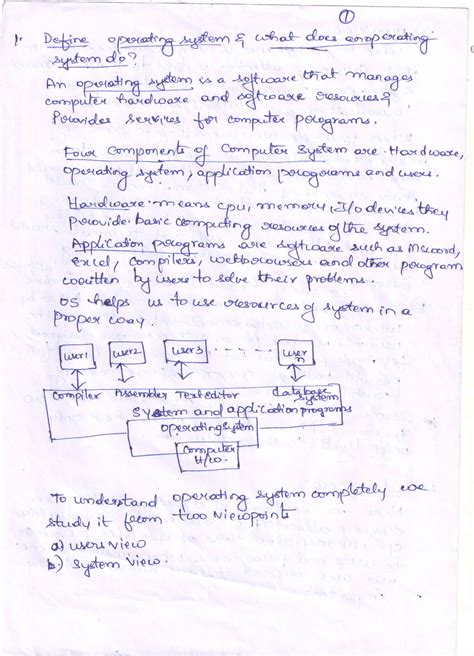 ①
1. Define operating system & what does an operating
system do?
An operating system is a software that manages
computer hardware and software resources &
Provides services for computer programs.
Four Components of Computer System are. Hardware,
operating system, application programs and users.
Hardware means cpu, memory, I/o devices they
provide basic computing resources of the system.
Application programs are software such as Msword,
Excel, compilers, webbrowsers and other program
written by users to solve their problems.
OS helps us to use resources of system in a
proper way.
user1 user2 user3 - - - - user n
Compiler Assembler Text editor database
system
System and application programs
operating system
Computer
H/w.
To understand operating system completely we
study it from two viewpoints
a) users view
b.) System View.